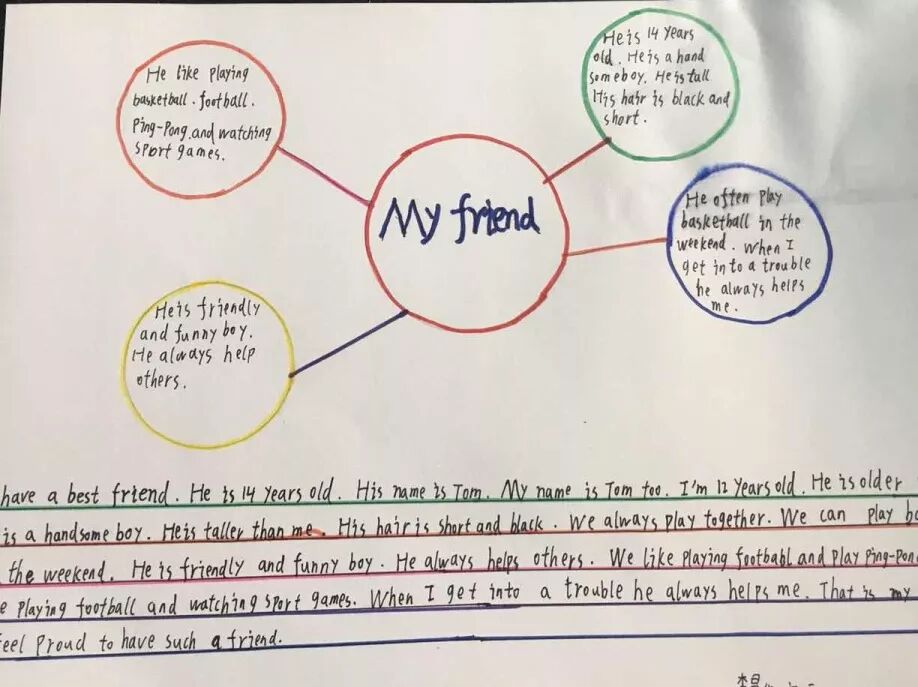 He like playing
basketball. football.
Ping-Pong. and watching
sport games.
He is 14 years
old. He is a hand
someboy. He is tall
His hair is black and
short.
My friend
He often play
basketball in the
weekend. When I
get into a trouble
he always helps
me.
He is friendly
and funny boy.
He always help
others.
have a best friend. He is 14 years old. His name is Tom. My name is Tom too. I'm 12 years old. He is older
is a handsome boy. He is taller than me. His hair is short and black. We always play together. We can play
the weekend. He is friendly and funny boy. He always helps others. We like playing footbabl and play Ping-Pon
e playing football and watching sport games. When I get into a trouble he always helps me. That is my
feel proud to have such a friend.